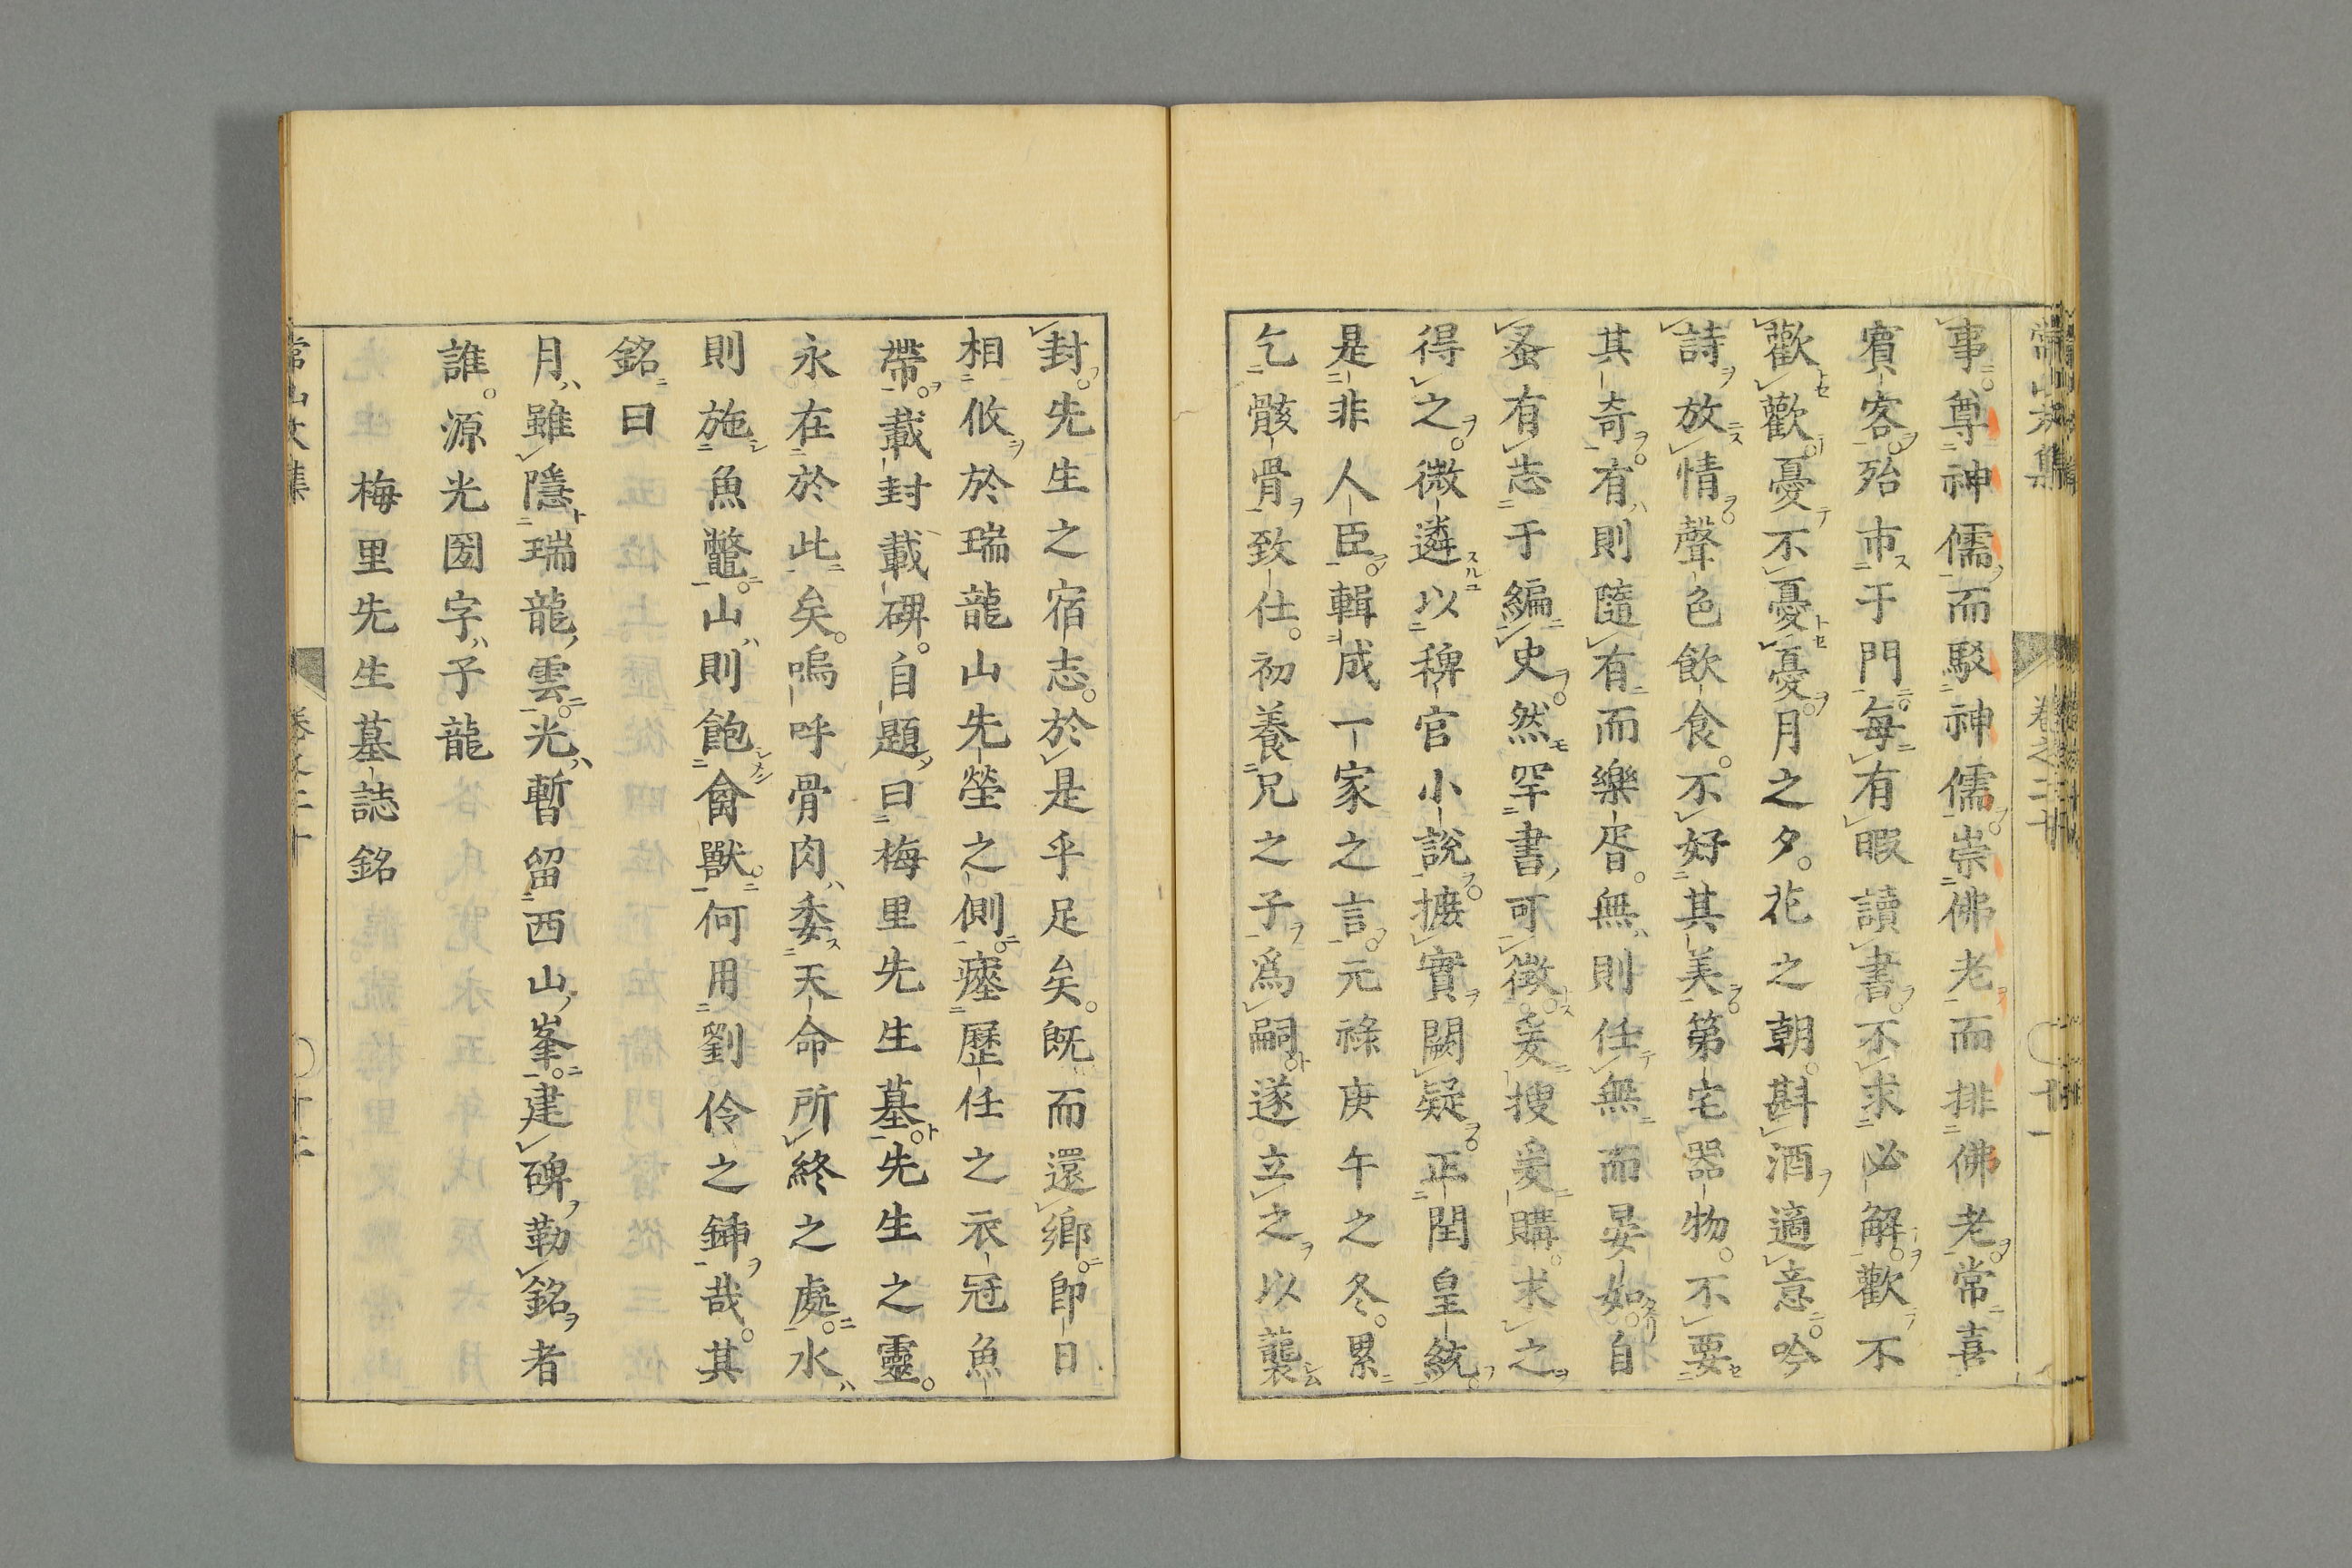 常山文集
卷之二十
十一
事尊神儒而駁神儒崇佛老而排佛老常喜
賓客殆市于門每有暇讀書不求必解歡不
歡歡憂不憂憂月之夕花之朝斟酒適意吟
詩放情聲色飲食不好其美第宅器物不要
其奇有則隨有而樂胥無則任無而晏如自
蚤有志于編史然罕書可徵爰搜爰購求之
得之微遴以稗官小說摭實闕疑正閏皇統
是非人臣輯成一家之言元祿庚午之冬累
乞骸骨致仕初養兄之子爲嗣遂立之以襲
封先生之宿志於是乎足矣既而還鄉卽日
相攸於瑞龍山先塋之側瘞歷任之衣冠魚
帶載封載碑自題曰梅里先生墓先生之靈
永在於此矣嗚呼骨肉委天命所終之處水
則施魚鼈山則飽禽獸何用劉伶之鍤哉其
銘曰
月雖隱瑞龍雲光暫留西山峯建碑勒銘者
誰源光圀字子龍
梅里先生墓誌銘
常山文集
卷之二十